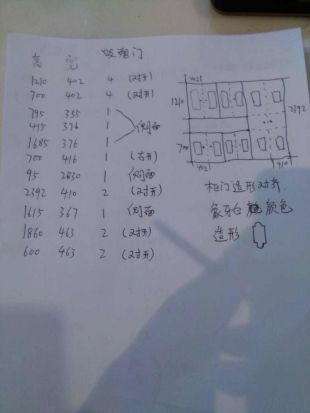 高 宽 吸塑门
1210 402 4 (对开)
700 402 4 (对开)
795 335 1
415 376 1 侧面
1685 376 1
700 416 1 (右开)
95 2830 1 侧面
2392 410 2 (对开)
1615 367 1 侧面
1860 463 2 (对开)
600 463 2 (对开)
402
1210
2392
700
402
410
柜门造形对齐
象牙白 颜色
造形